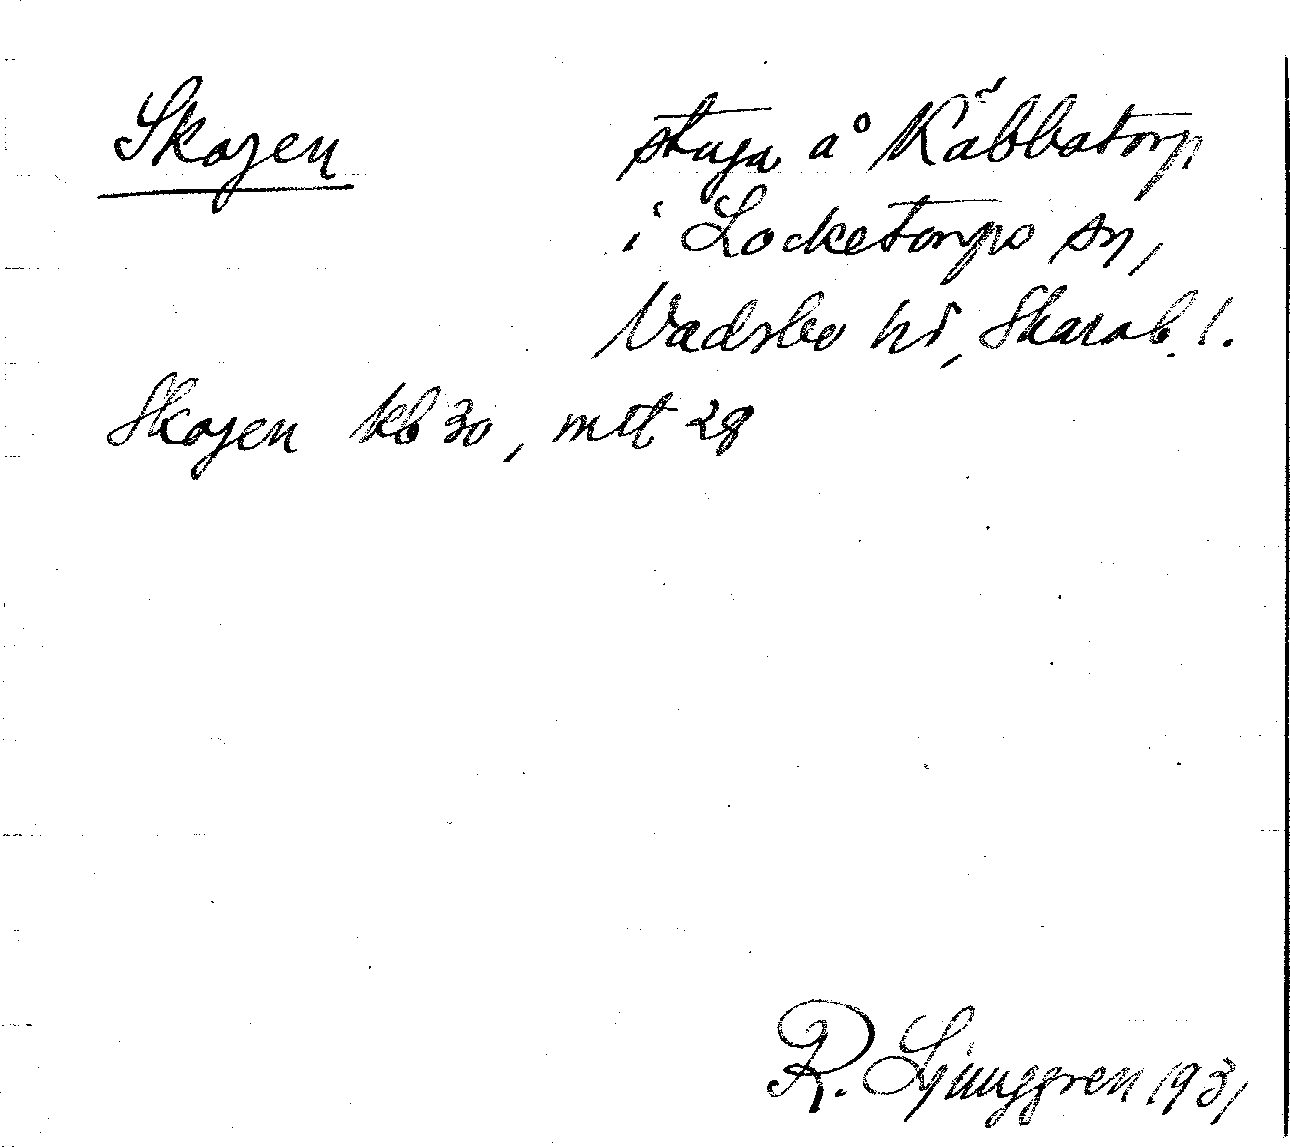 Skogen
stuga å Käbbatorp
i Locketorps sn,
Vadsbo hd, Skarab. l.
Skogen kb 30, mtt 28
R. Ljunggren 1931